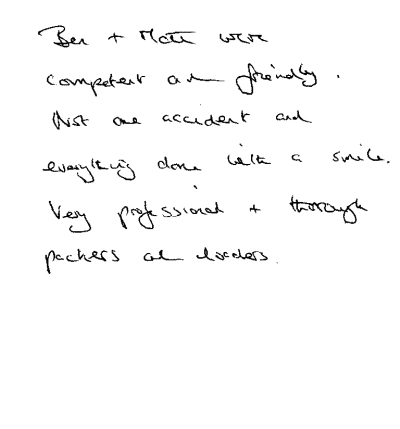 Ben + Matt were
competent and friendly.
Not one accident and
everything done with a smile.
Very professional + thorough
packers and loaders.